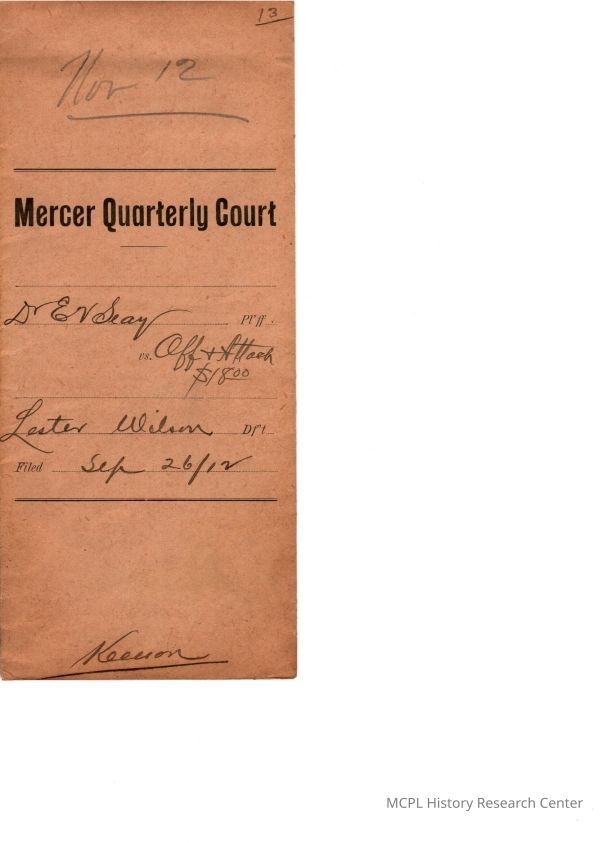 13
Nov 12
Mercer Quarterly Court
Dr E V Seay Pl'ff.
vs. Off & Attach
$18.00
Lester Wilson Df't.
Filed Sep 26/12
Keenon
MCPL History Research Center